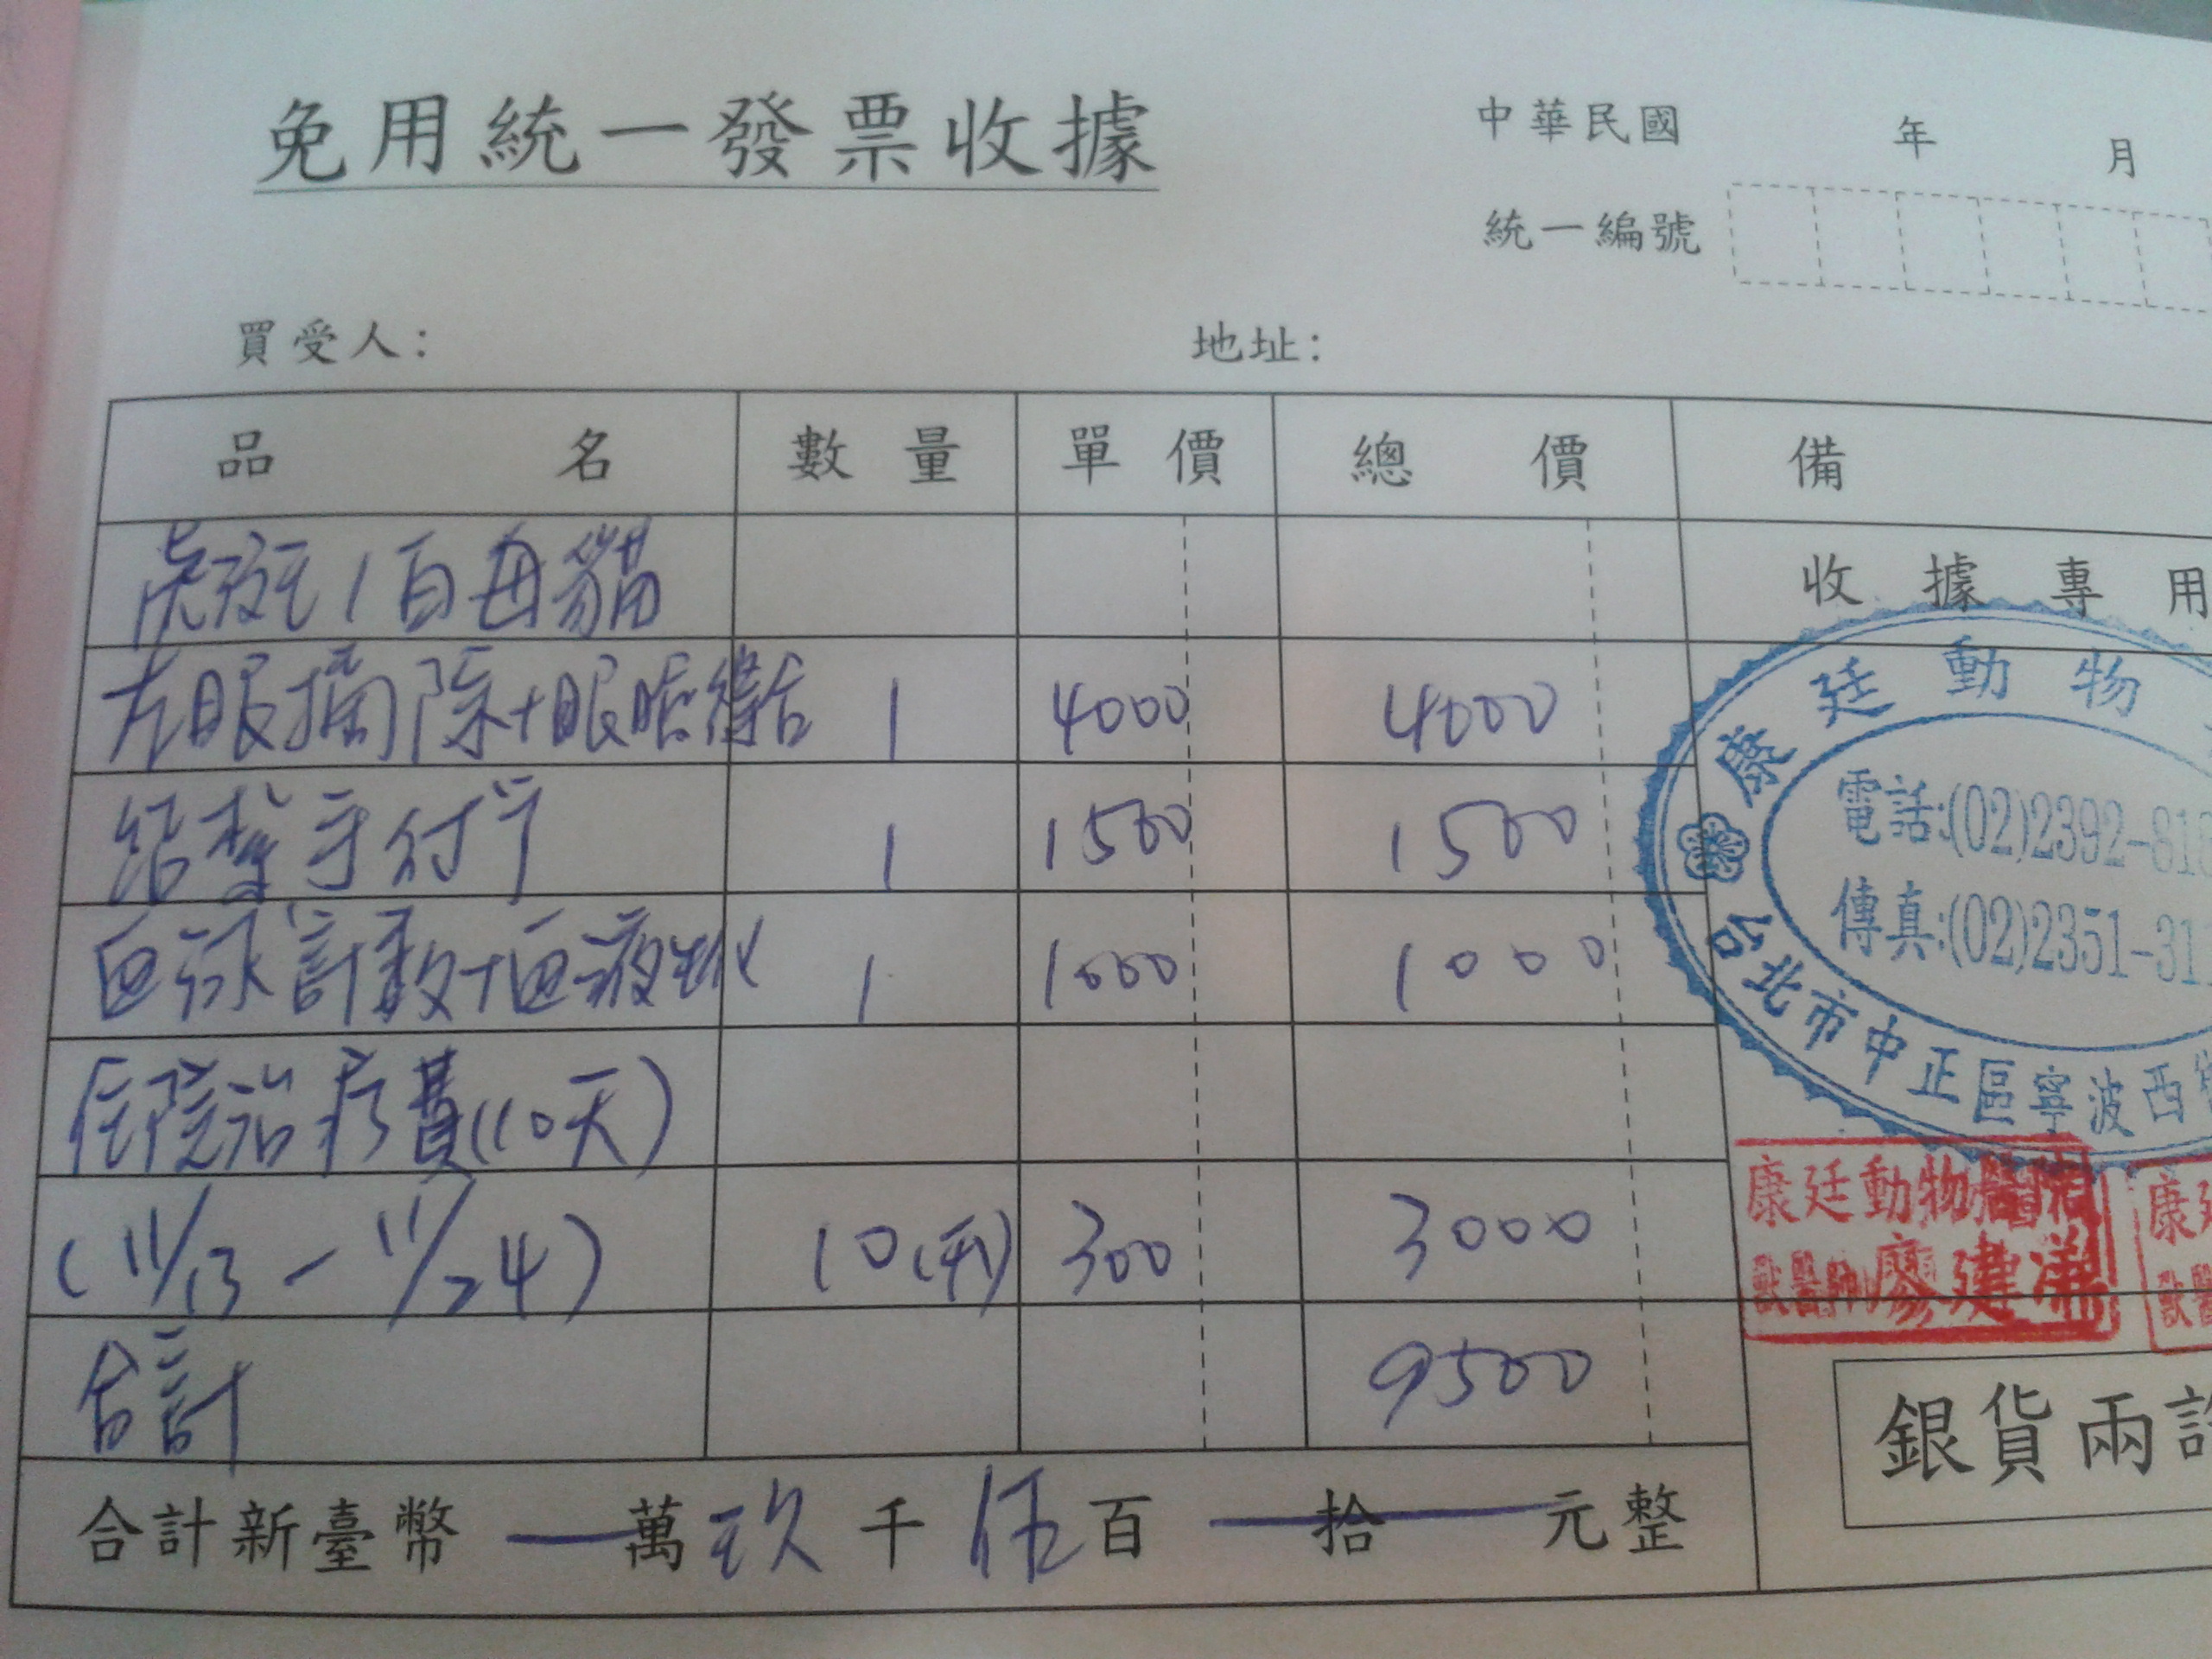 免用統一發票收據
中華民國 年 月
統一編號
買受人： 地址：
品 名 數量 單價 總 價 備
虎斑/白母貓
收據專用
左眼摘除+眼瞼縫合 1 4000 4000
結紮手術 1 1500 1500
血球計數+血液生化 1 1000 1000
住院治療費(10天)
(11/13-11/24) 10(天) 300 3000
合計 9500
合計新臺幣 萬玖千伍百 拾 元整
康廷動物
電話:(02)2392-81
傳真:(02)2351-31
台北市中正區寧波西
康廷動物醫院
獸醫師廖建
康廷
獸醫
銀貨兩訖